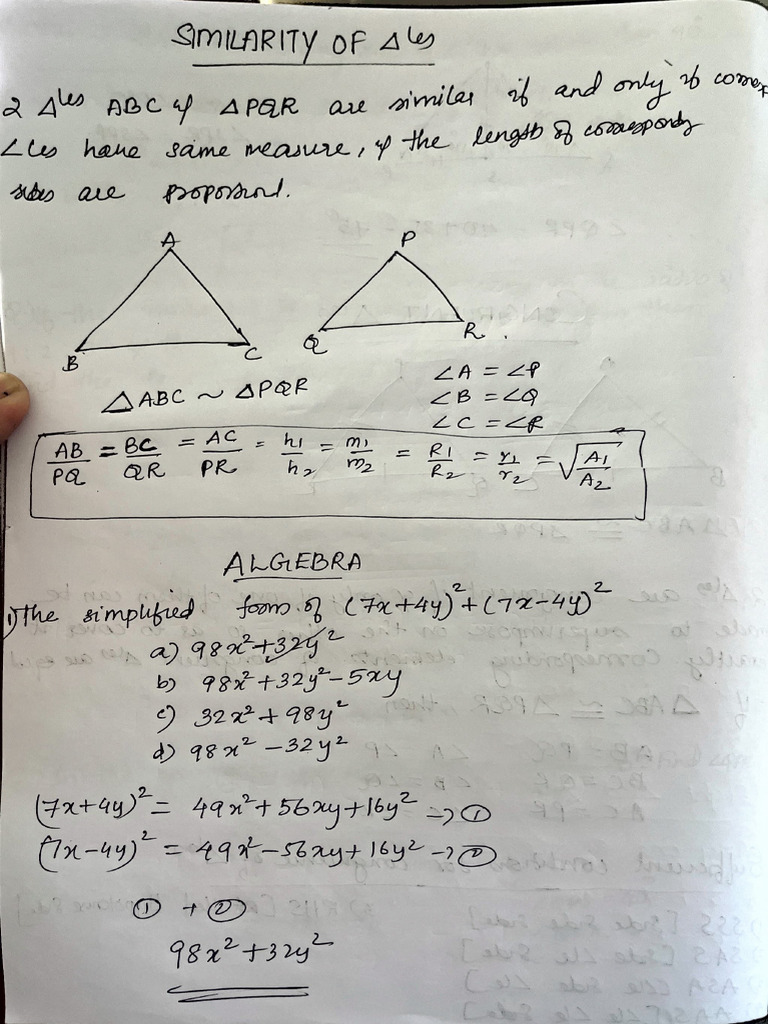 SIMILARITY OF Δles
2 Δles ABC & ΔPQR are similar if and only if
∠les have same measure, & the length of
sides are
A
P
B
C
Q
R.
ΔABC ~ ΔPQR
∠A = ∠P
∠B = ∠Q
∠C = ∠R
AB/PQ = BC/QR = AC/PR = h1/h2 = m1/m2 = R1/R2 = r1/r2 = √(A1/A2)
ALGEBRA
1) The simplified form of (7x+4y)² + (7x-4y)²
a) 98x²+32y²
b) 98x²+32y²-5xy
c) 32x²+98y²
d) 98x²-32y²
(7x+4y)² = 49x²+56xy+16y² → ①
(7x-4y)² = 49x²-56xy+16y² → ②
① + ②
98x²+32y²